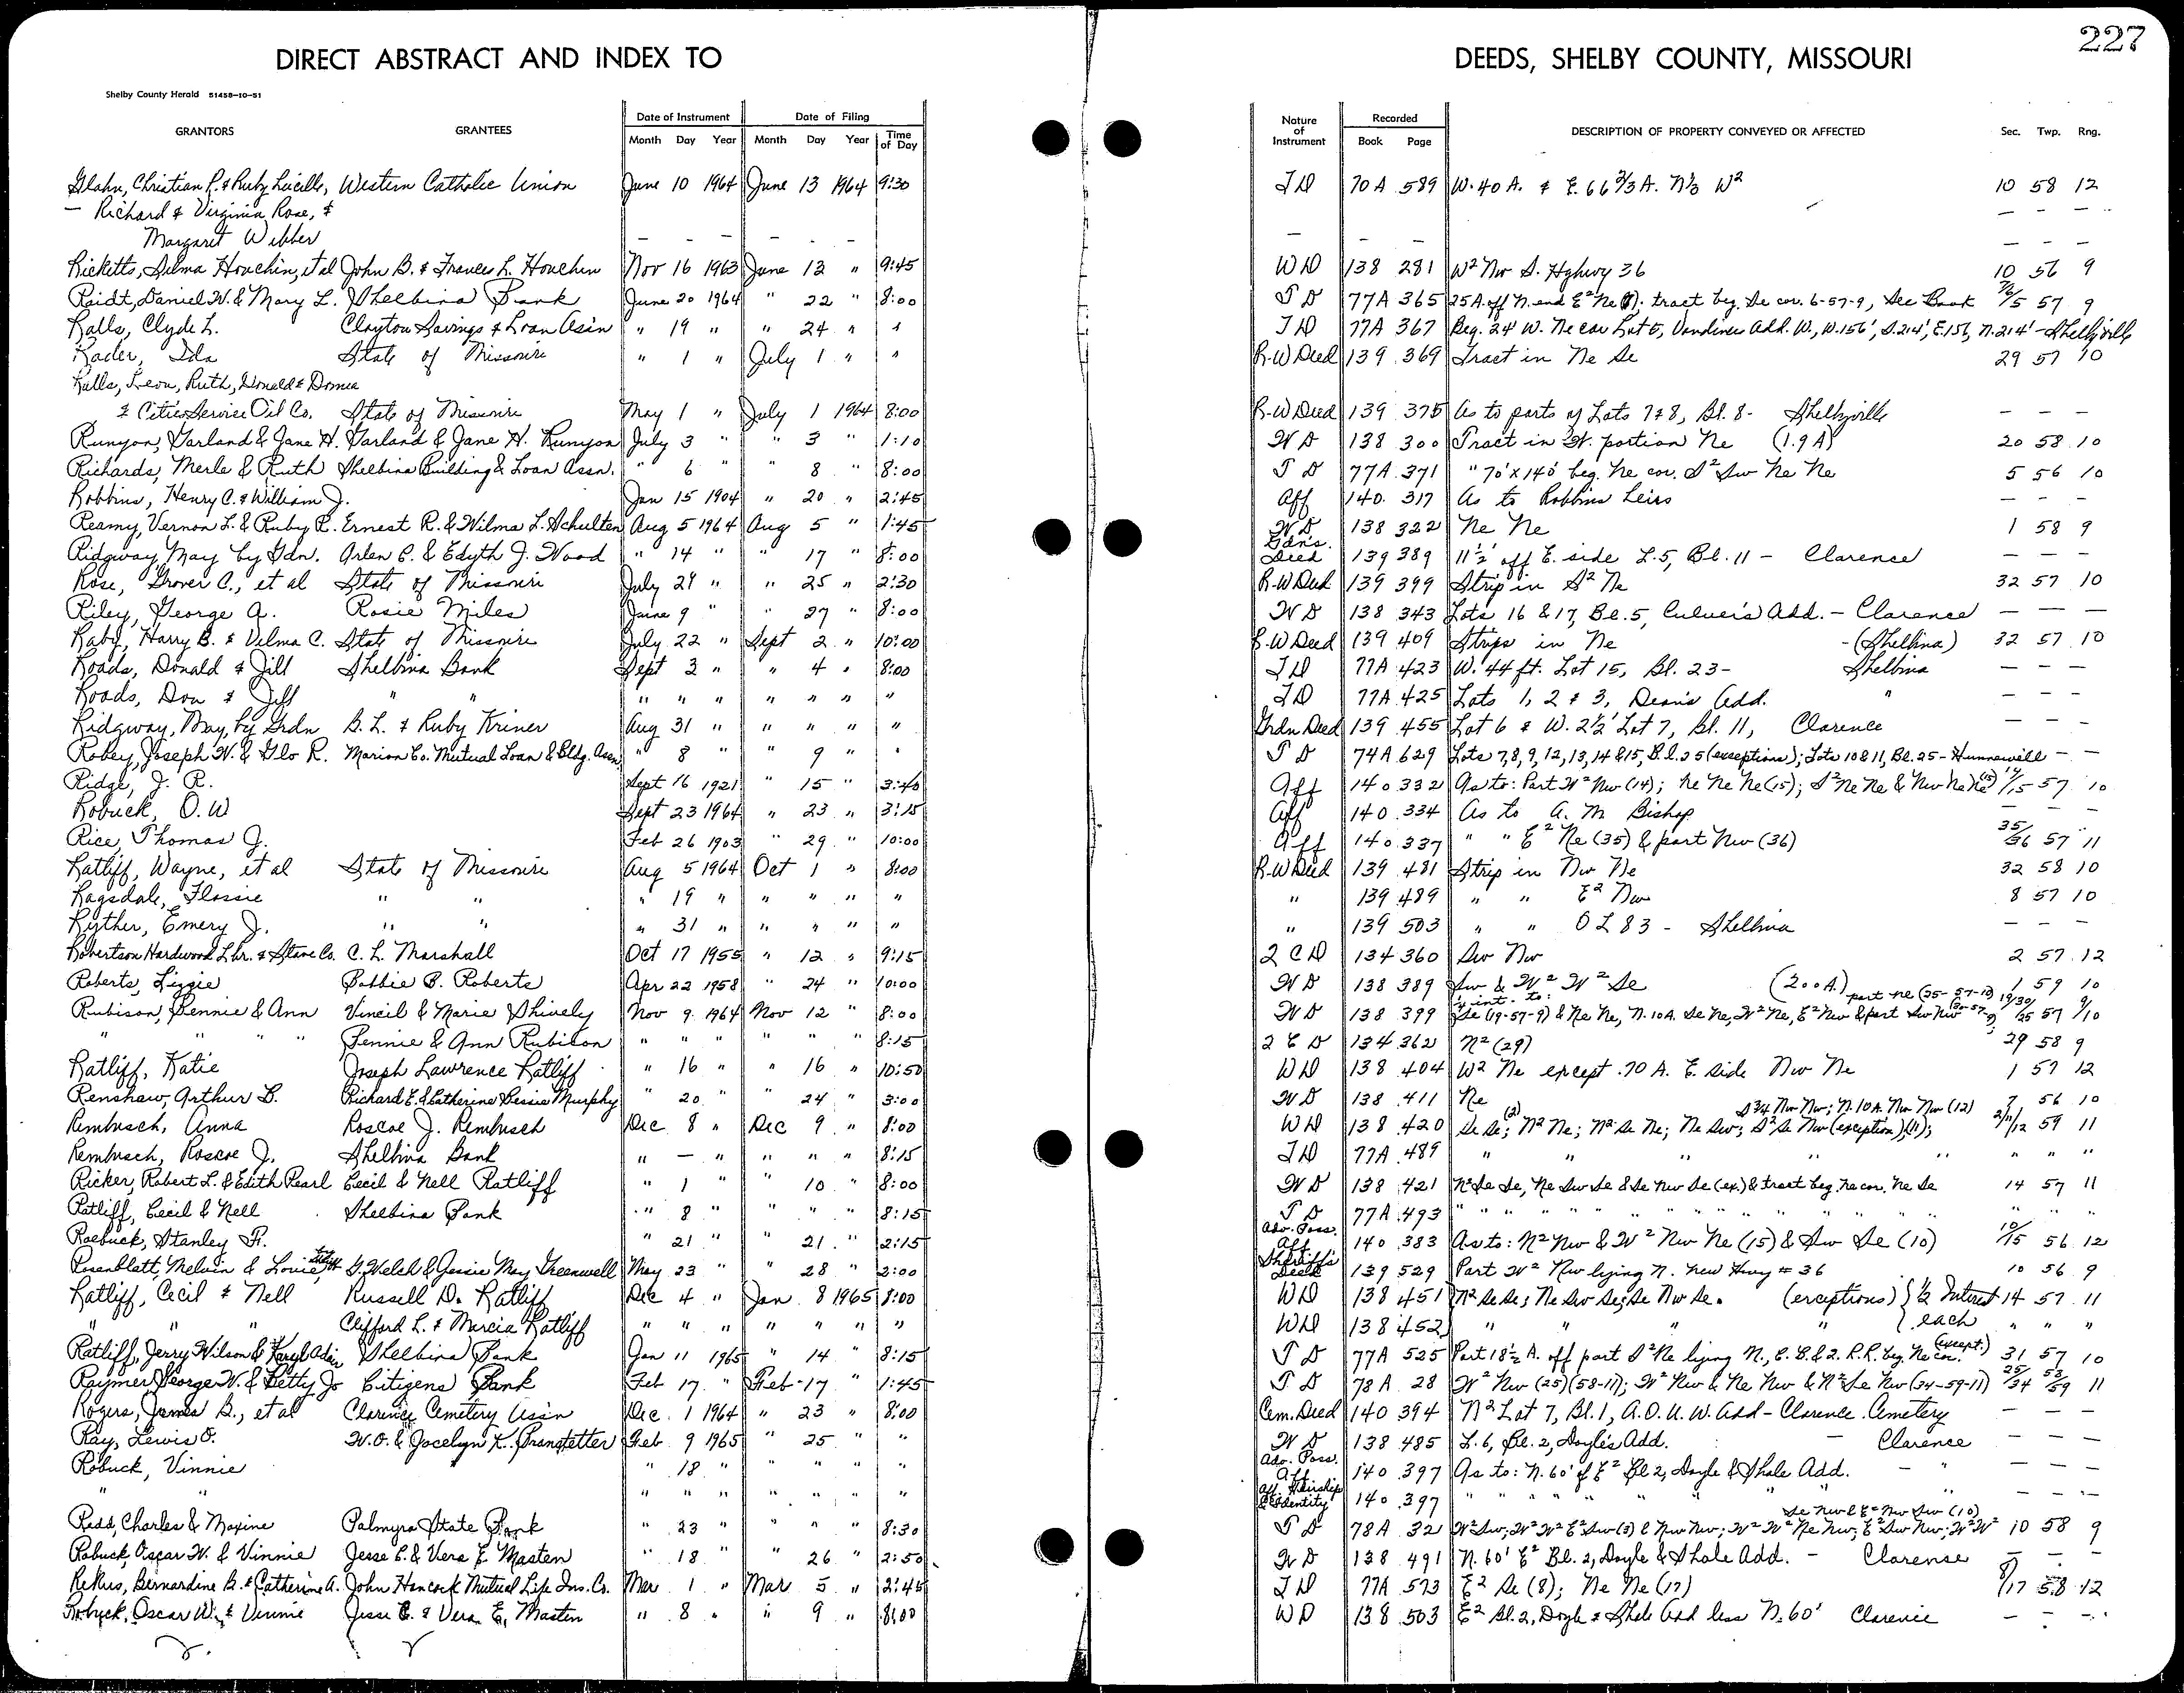 227
DIRECT ABSTRACT AND INDEX TO DEEDS, SHELBY COUNTY, MISSOURI
Shelby County Herald 51458-10-51
GRANTORS GRANTEES Date of Instrument Date of Filing Nature of Instrument Recorded DESCRIPTION OF PROPERTY CONVEYED OR AFFECTED Sec. Twp. Rng.
Month Day Year Month Day Year Time of Day Book Page
Glahn, Christian P. & Ruby Lucille, Western Catholic Union June 10 1964 June 13 1964 9:30 T D 70A 589 W. 40 A. & E. 66 2/3 A. N 1/3 W2 10 58 12
— Richard & Virginia Rose, & — — —
Margaret Webber — — — — — — — — — — — —
Ricketts, Selma Houchin, et al John B. & Frances L. Houchin Nov 16 1963 June 12 " 9:45 WD 138 281 W2 Nw S. Hghwy 36 10 56 9
Raidt, Daniel W. & Mary L. Shelbina Bank June 20 1964 " 22 " 8:00 T D 77A 365 25 A. off N. end E2 Ne tract beg. Se cor. 6-57-9, See Book 5 57 9
Ralls, Clyde L. Clayton Savings & Loan Ass'n " 19 " " 24 " " T D 77A 367 Beg. 24' W. Ne cor Lot 5, Vandiver Add. W., W. 156', S. 214', E. 156, N. 214' - Shelbyville
Rader, Ida State of Missouri " 1 " July 1 " " R-W Deed 139 369 Tract in Ne Se 29 57 10
Ralls, Leon, Ruth, Donald & Donna
& Cities Service Oil Co. State of Missouri May 1 " July 1 1964 8:00 R-W Deed 139 375 As to parts of Lots 7 & 8, Bl. 8 - Shelbyville — — —
Runyon, Garland & Jane H. Garland & Jane H. Runyon July 3 " " 3 " 1:10 W D 138 300 Tract in W. portion Ne (1.9 A) 20 58 10
Richards, Merle & Ruth Shelbina Building & Loan Assn. " 6 " " 8 " 8:00 T D 77A 371 " 70' x 140' beg. Ne cor. S2 Sw Ne Ne 5 56 10
Robbins, Henry C. & William J. Jan 15 1904 " 20 " 2:45 Aff 140 317 As to Robbins heirs — — —
Reamy, Vernon L. & Ruby R. Ernest R. & Wilma L. Schulten Aug 5 1964 Aug 5 " 1:45 W D 138 322 Ne Ne 1 58 9
Ridgway, May by Gdn. Arlen C. & Edyth J. Wood " 14 " " 17 " 8:00 Gdn's. Deed 139 389 11 1/2' off E. side L. 5, Bl. 11 - Clarence — — —
Rose, Grover C., et al State of Missouri July 24 " " 25 " 2:30 R-W Deed 139 399 Strip in S2 Ne 32 57 10
Riley, George A. Rosie Miles June 9 " " 27 " 8:00 W D 138 343 Lots 16 & 17, Bl. 5, Culver's Add. - Clarence — — —
Raby, Harry B. & Velma C. State of Missouri July 22 " Sept 2 " 10:00 R-W Deed 139 409 Strips in Ne - (Shelbina) 32 57 10
Roads, Donald & Jill Shelbina Bank Sept 3 " " 4 " 8:00 T D 77A 423 W. 44 ft. Lot 15, Bl. 23 - Shelbina — — —
Roads, Don & Jill " " " " " " " " " T D 77A 425 Lots 1, 2 & 3, Dean's Add. " — — —
Ridgway, May, by Grdn B. L. & Ruby Kriner Aug 31 " " " " " Grdn Deed 139 455 Lot 6 & W. 2 1/2' Lot 7, Bl. 11, Clarence — — —
Robey, Joseph W. & Glo R. Marion Co. Mutual Loan & Bldg. Assn. " 8 " " 9 " " T D 74A 629 Lots 7, 8, 9, 12, 13, 14 & 15, Bl. 25 (exceptions); Lots 10 & 11, Bl. 25 - Hunnewell — —
Ridge, J. R. Sept 16 1921 " 15 " 3:40 Aff 140 332 As to: Part W2 Nw (14); Ne Ne Ne (15); S2 Ne Ne & Nw Ne Ne (15) 14/15 57 10
Robuck, O. W Sept 23 1964 " 23 " 3:15 Aff 140 334 As to A. M. Bishop —
Rice, Thomas J. Feb 26 1903 " 29 " 10:00 Aff 140 337 " " E2 Ne (35) & part Nw (36) 35/36 57 11
Ratliff, Wayne, et al State of Missouri Aug 5 1964 Oct 1 " 8:00 R-W Deed 139 481 Strip in Nw Ne 32 58 10
Ragsdale, Flossie " " " 19 " " " " " " 139 489 " " E2 Nw 8 57 10
Ryther, Emery J. " " " 31 " " " " " " 139 503 " " OL 83 - Shelbina — — —
Robertson Hardwood Lbr. & Stave Co. C. L. Marshall Oct 17 1955 " 12 " 9:15 2 C D 134 360 Sw Nw 2 57 12
Roberts, Lizzie Bobbie B. Roberts Apr 22 1958 " 24 " 10:00 W D 138 389 Sw & W2 W2 Se (200 A) 1 59 10
Rubison, Bennie & Ann Vincil & Marie Shively Nov 9 1964 Nov 12 " 8:00 W D 138 399 Se (19-57-9) & Ne Ne, N. 10 A. Se Ne, W2 Ne, E2 Nw & part Sw Nw part Ne (25-57-10) 19/30/25 57 9/10
" " " " Bennie & Ann Rubison " " " " " " 8:15 2 C D 134 362 N2 (29) 29 58 9
Ratliff, Katie Joseph Lawrence Ratliff " 16 " " 16 " 10:50 WD 138 404 W2 Ne except .70 A. E. side Nw Ne 1 57 12
Renshaw, Arthur B. Richard E. & Catherine Bessie Murphy " 20 " 24 " 3:00 W D 138 411 Ne 7 56 10
Rembusch, Anna Roscoe J. Rembusch Dec 8 " Dec 9 " 8:00 WD 138 420 Se Se; (2) N2 Ne; N2 Se Ne; Ne Sw; S2 Se Nw (exception) (11); S 3/4 Nw Nw; N. 10 A. Nw Nw (12) 2/11/12 59 11
Rembusch, Roscoe J. Shelbina Bank " — " " " " 8:15 T D 77A 489 " " " " " " " "
Ricker, Robert L. & Edith Pearl Cecil & Nell Ratliff " 1 " 10 " 8:00 W D 138 421 N2 Se Se, Ne Sw Se & Se Nw Se (ex.) & tract beg. Ne cor. Ne Se 14 57 11
Ratliff, Cecil & Nell Shelbina Bank " 8 " " " " 8:15 T D 77A 493 " " " " " " " " " " "
Roebuck, Stanley F. " 21 " " 21 " 2:15 Adv. Poss. Aff 140 383 As to: N2 Nw & W2 Nw Ne (15) & Sw Se (10) 10/15 56 12
Rosenblatt, Melvin & Louie, G. Welch & Jessie May Greenwell May 23 " " 28 " 2:00 Sheriff's Deed 139 529 Part W2 Nw lying N. new Hwy # 36 10 56 9
Ratliff, Cecil & Nell Russell D. Ratliff Dec 4 " Jan 8 1965 8:00 WD 138 451 N2 Se Se; Ne Sw Se; Se Nw Se. (exceptions) 1/2 Interest 14 57 11
" " " Clifford L. & Marcia Ratliff " " " " " " " WD 138 452 " " " each " " "
Ratliff, Jerry Wilson & Karyl Adair Shelbina Bank Jan 11 1965 " 14 " 8:15 T D 77A 525 Part 18 1/2 A. off part S2 Ne lying N., C. B. & Q. R.R. beg. Ne cor. (except.) 31 57 10
Raymer, George W. & Betty Jo Citizens Bank Feb 17 " Feb 17 " 1:45 T D 78A 28 W2 Nw (25) (58-11); W2 Nw & Ne Nw & N2 Se Nw (34-59-11) 25/34 58/59 11
Rogers, James B., et al Clarence Cemetery Ass'n Dec. 1 1964 " 23 " 8:00 Cem. Deed 140 394 N2 Lot 7, Bl. 1, A.O.U.W. Add - Clarence Cemetery — — —
Ray, Lewis O. W.O. & Jocelyn K. Branstetter Feb 9 1965 " 25 " " W D 138 485 L. 6, Bl. 2, Doyle's Add. - Clarence — — —
Robuck, Vinnie " 18 " " " " " Adv. Poss. Aff 140 397 As to: N. 60' of E2 Bl 2, Doyle & Shale Add. — " — — —
" " " " " " " " " Aff. Heirship & Identity 140 397 " " " " " " " — — —
Redd, Charles & Maxine Palmyra State Bank " 23 " " " " 8:30 T D 78A 32 W2 Sw; W2 W2 E2 Sw (3) & Nw Nw; W2 W2 Ne Nw; E2 Sw Nw; W2 W2 Se Nw & E2 Nw Sw (10) 10 58 9
Robuck, Oscar W. & Vinnie Jesse C. & Vera E. Masten " 18 " " 26 " 2:50 W D 138 491 N. 60' E2 Bl. 2, Doyle & Shale Add. - Clarence — — —
Rekus, Bernardine B. & Catherine A. John Hancock Mutual Life Ins. Co. Mar 1 " Mar 5 " 2:45 T D 77A 573 E2 Se (8); Ne Ne (17) 8/17 58 12
Robuck, Oscar W. & Vinnie Jesse C. & Vera E. Masten " 8 " " 9 " 8:00 WD 138 503 E2 Bl. 2, Doyle & Shale Add less N. 60' Clarence — — —